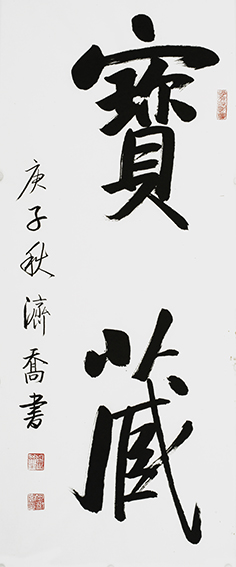 寶藏
庚子秋濟喬書